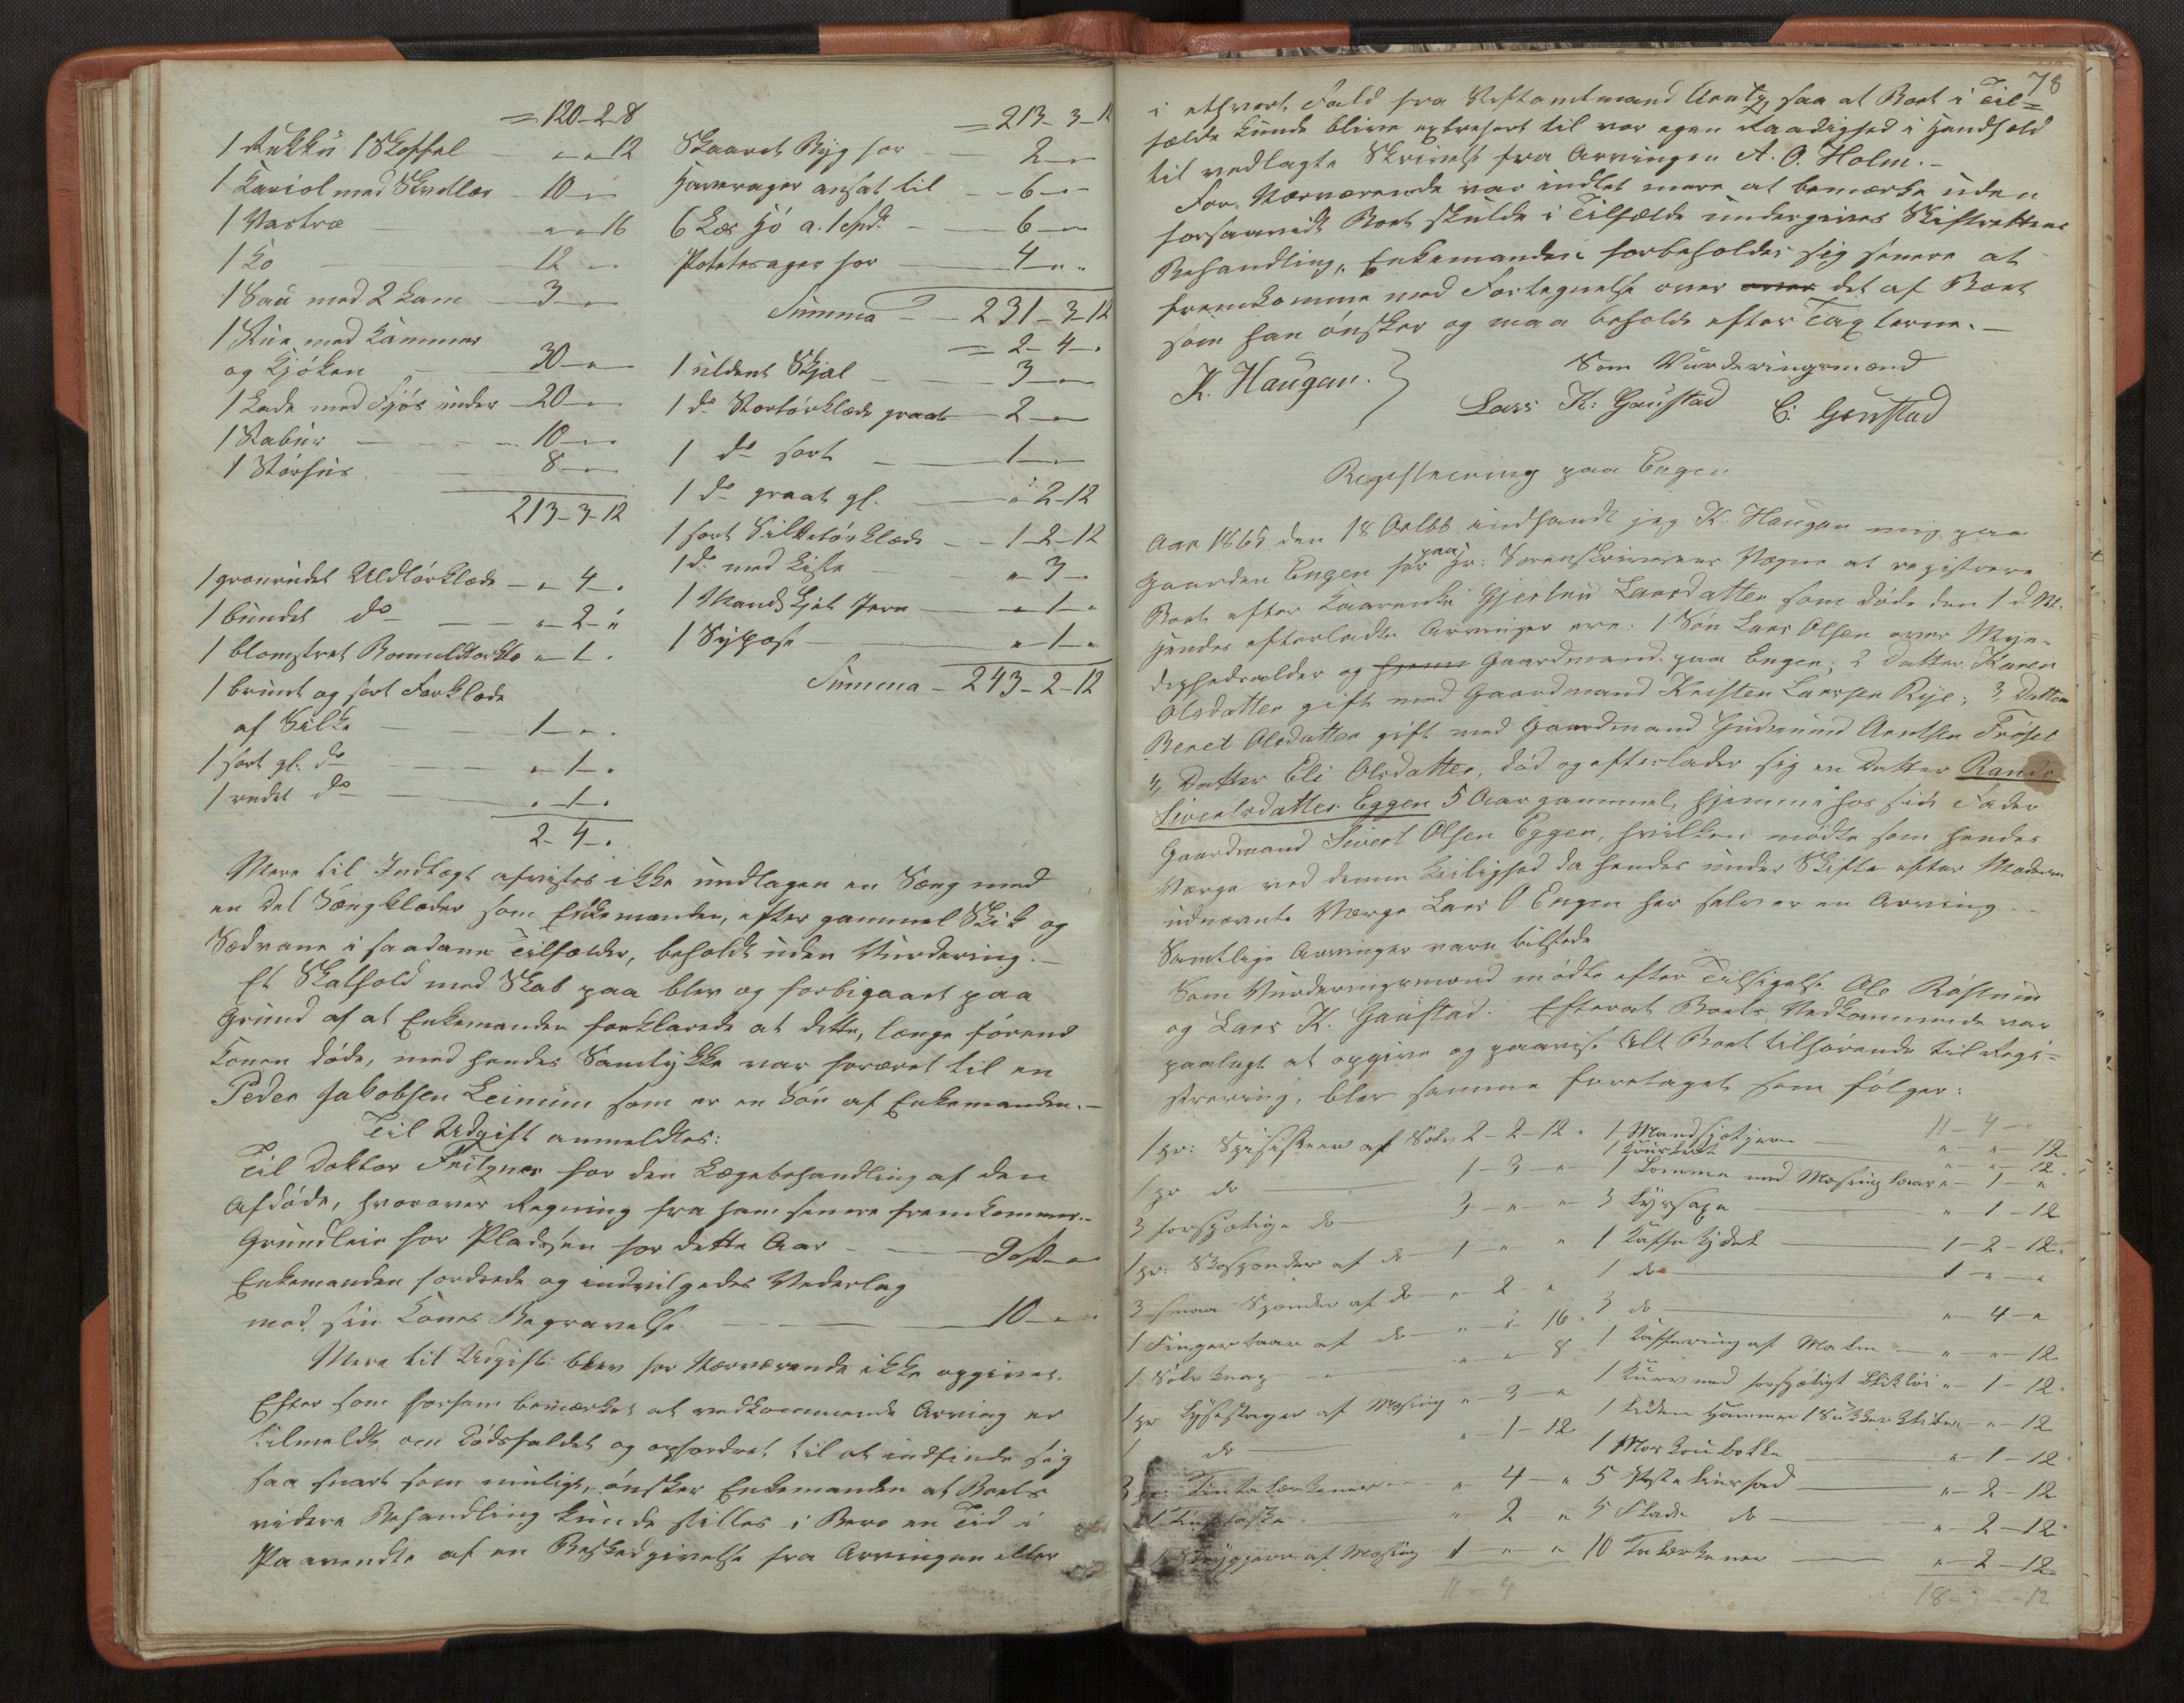 = 120-2-8
1 Rukku 1 Skoffel - " - " 12
1 Kariol med Skrællæs 10 - "
1 Vastræ - " - " 16
1 Ko - 12 - "
1 Sau med 2 Lam - 3 - "
1 Stue med Kammer
og Kjöken - 30 - "
1 Lade med Fjös under - 20 - "
1 Stabur - 10 - "
1 Størhus 8 - "
213-3-12
1 grønrudet Uldtörklæde - " 4 - "
1 bundet do - " - 2 - "
1 blomstret Bomuldtørkl - " - 1 - "
1 brunt og sort Forklæde
af Silke - 1 - " - "
1 sort gl. do - " - 1 - "
1 rudet do - " - 1 - "
2-4-"
= 213-3-12
Skaaret Byg for - 2 - "
Haverager ansat til - 6 - "
6 Læs Hö a. 1 Spd. - 6 - "
Potetesager for - 4 - "
Summa - 231-3-12
= 2-4-"
1 uldent Skjal - 3 - "
1 do Stortörklæde graat - 2 - "
1 do sort - 1 - "
1 do graat gl. - " 2-12
1 sort Silketörklæde - 1-2-12
1 do med Kiste - " 3 - "
1 Mandskjöt Jern - " - 1 - "
1 Sypose - " - 1 - "
Summa - 243-2-12
Mere til Indtægt afvistes ikke undtagen en Sæng med
en Del Sængklæder som Enkemanden, efter gammel Skik og
Sædvane i saadanne Tilfælder, beholdt uden Vurdering. -
Et Skathold med Skab paa blev og forbigaaet paa
Grund af at Enkemanden forklarede at dette, længe förend
Konen döde, med hendes Samtykke var foræret til en
Peder Jakobsen Leinum som er en Sön af Enkemanden. -
Til Udgift anmeldtes:
Til Doktor Feilzner for den Lægebehandling af den
Afdöde, hvorover Regning fra ham senere fremkommer. -
Grundleie for Pladsen for dette Aar - 9 Spd - "
Enkemanden fordrede og indvilgedes Vederlag
med sin Kones Begravelse - 10 - "
Mere til Udgift blev for Nærværende ikke opgivet.
Efter som forsom bemærket at vedkommende Arving er
tilmeldt om Dödsfaldet og opfordret til at indfinde sig
saa snart som muligt, önsker Enkemanden at Boets
videre Behandling kunde stilles i Bero en Tid i
Paavendte af en Beskedgivelse fra Arvingen eller
78
i ethvert Fald fra Stiftamtmand Arntz, saa at Boet i Til=
fælde kunde blive extraheret til vor egen Raadighed i Henhold
til vedlagte Skrivelse fra Arvingen A. O. Holm. -
For Nærværende var indtet mere at bemærke uden
forsaavidt Boet skulde i Tilfælde undergives Skifterettens
Behandling, Enkemanden forbeholder sig senere at
fremkomme med Fortegnelse over over det af Boet
som han önsker og maa beholde efter Taxterne. -
K. Haugan. }
Som Vurderingsmænd
Lars K: Gaustad E: Gaustad
Registrering paa Engen
Aar 1865 den 18 Octbb. indfandt jeg K. Haugan mig paa
Gaarden Engen for paa Hr: Sorenskriverens Vegne at registrere
Boet efter Kaarenke Gjertrù Larsdatter som döde den 1 d. M.
Hendes efterladte Arvinger ere: 1 Sön Lars Olsen over Myn-
dighedsalder og hjemm Gaardmand paa Engen; 2 Datter Karen
Olsdatter gift med Gaardmand Kristen Larssen Rye; 3 Datter
Beret Olsdatter gift med Gaardmand Gudmund Arntsen Fröset
4, Datter Eli Olsdatter, död og efterlader sig en Datter Randi
Sivertsdatter Eggen 5 Aar gammel, hjemme hos sin Fader
Gaardmand Sivert Olsen Eggen, hvilken mödte som hendes
Værge ved denne Leilighed da hendes under Skifte efter Moderen
udnævnte Værge Lars O Engen her selv er en Arving. -
Samtlige Arvinger vare tilstede
Som Vurderingsmænd mödte efter Tilsigelse Ole Röstum
og Lars K. Gaustad. Efterat Boets Vedkommende var
paalagt at opgive og paavise Alt Boet tilhörende til Regi-
strering, blev samme foretaget som fölger:
1 pr: Spiseskeer af Sölv 2-2-12.
1 pr do - 1-3-"
3 forskjælige do - 3-"-"
1 pr: Skospænder af do - 1-"-"
3 smaa Spænder af do - " - 2 - "
1 Fingertaar af do - " - " 16.
1 Sölv Knap - " - " - 8
1 pr Lysestager af Mesing " - 3 - "
1 do - " - 1-12
3 pr: Tintallerkener - " - 4 - "
1 - " 2 "
1 Strygjern af Mesing 1 - " - "
11-4
11-4-"
1 Mandskjøtjern " - " - 12
1 Krusbrt " - " - 12.
1 Lomme med Mesing laas " - 1 - "
3 Lyssaxe - " 1-12
1 Kaffe Kjedel - 1-2-12.
1 do - 1-"-"
3 do - " - 4 - "
1 Kaffering af Malm - " - " - 12
1 Kurv med forskjæligt Bliktøi " - 1-12.
1 Liden Hammer 1 Sukkerklipper - " - 12
1 Morkoubotte - " - 1-12
5 Stetelurfad - " - 2-12
5 Flade do - " - 2-12.
10 Tallerkener - " - 2-12
18 - " - 12